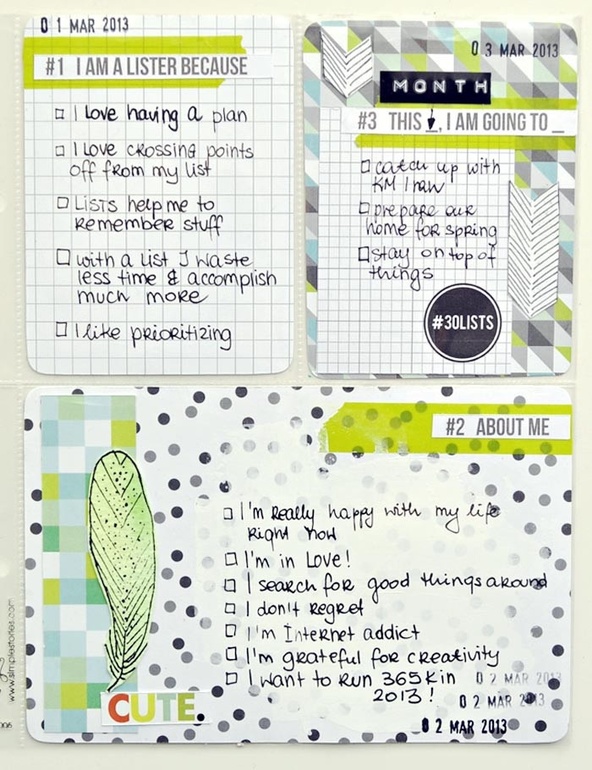 01 MAR 2013
#1 I AM A LISTER BECAUSE
I love having a plan
I love crossing points
off from my list
Lists help me to
remember stuff
with a list I waste
less time & accomplish
much more
I like prioritizing
03 MAR 2013
MONTH
#3 THIS _, I AM GOING TO _
catch up with
prepare our
home for spring
stay on top of
things
#30LISTS
#2 ABOUT ME
I'm really happy with my life
right now
I'm in Love!
I search for good things around
I don't regret
I'm Internet addict
I'm grateful for creativity
I want to run 365K in
2013!
02 MAR 2013
02 MAR 2013
02 MAR 2013
CUTE.
www.simplestories.com